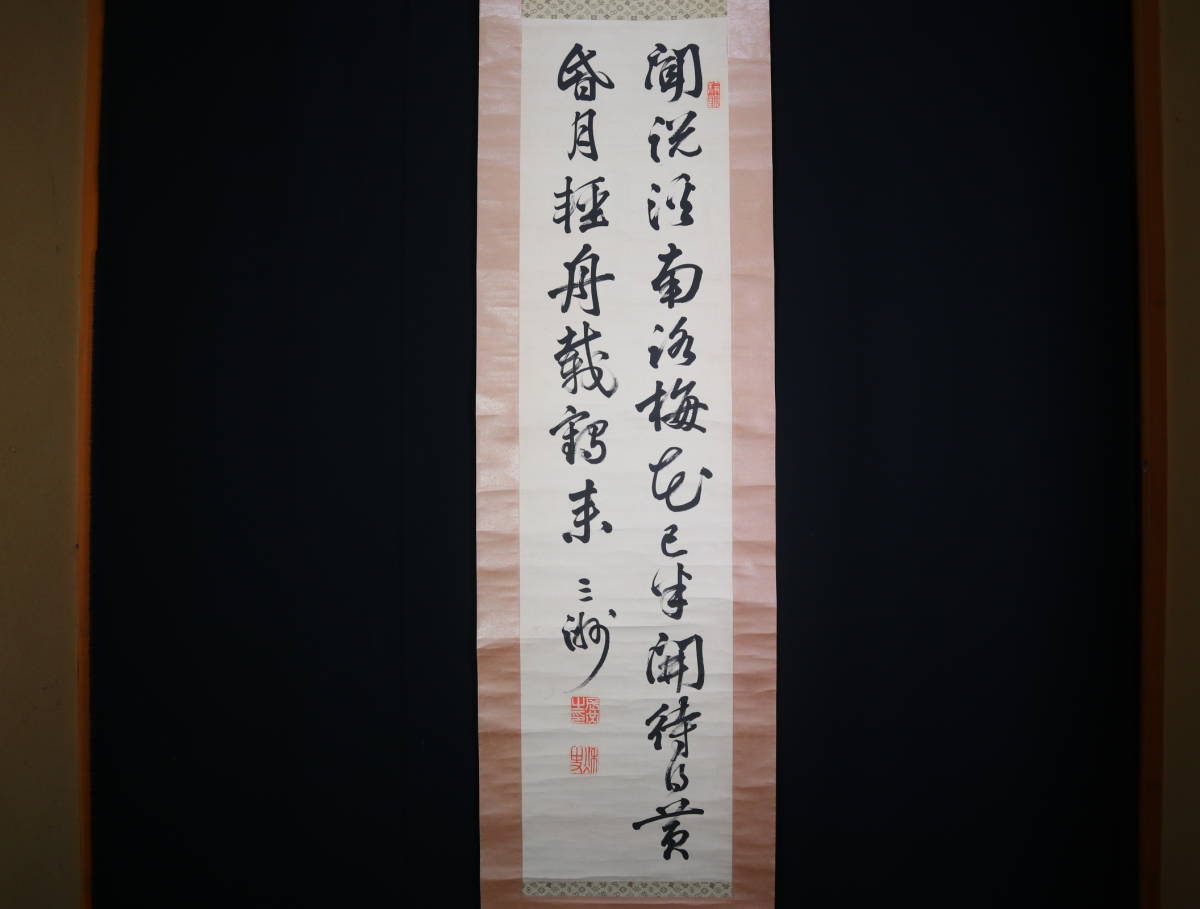 聞説溪南路梅花已半開待得黄
昏月輕舟載鶴来
三洲